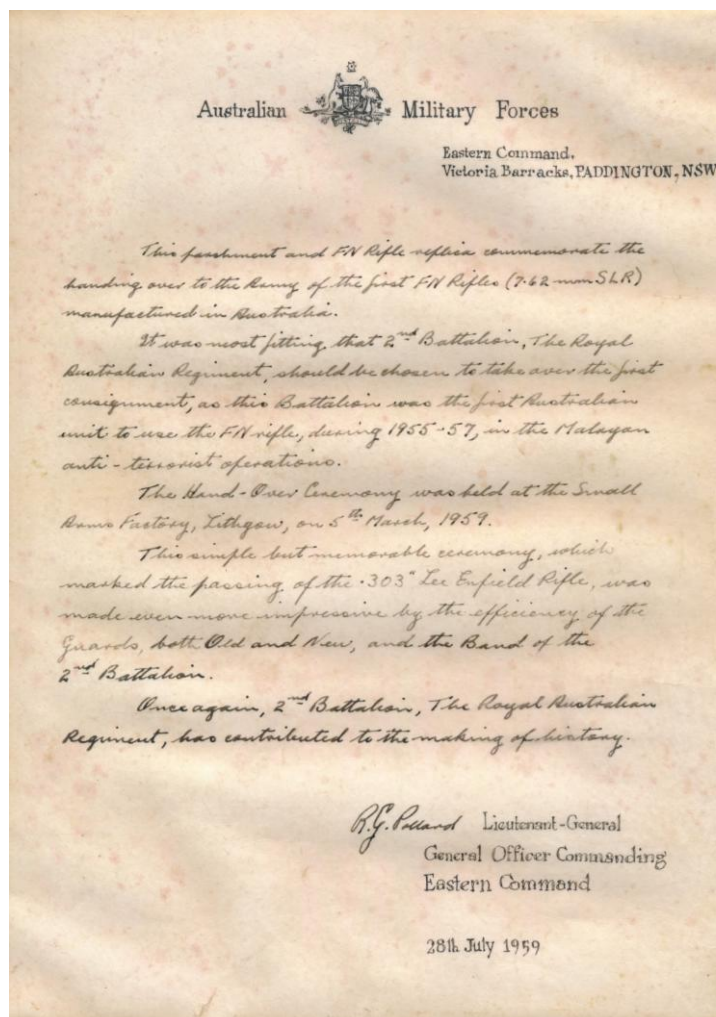 Australian Military Forces
Eastern Command,
Victoria Barracks, PADDINGTON, NSW
This parchment and FN Rifle replica commemorate the
handing over to the Army of the first FN Rifles (7·62 mm SLR)
manufactured in Australia.
It was most fitting that 2nd Battalion, The Royal
Australian Regiment, should be chosen to take over the first
consignment, as this Battalion was the first Australian
unit to use the FN rifle, during 1955-57, in the Malayan
anti-terrorist operations.
The Hand-Over Ceremony was held at the Small
Arms Factory, Lithgow, on 5th March, 1959.
This simple but memorable ceremony, which
marked the passing of the ·303" Lee Enfield Rifle, was
made even more impressive by the efficiency of the
Guards, both Old and New, and the Band of the
2nd Battalion.
Once again, 2nd Battalion, The Royal Australian
Regiment, has contributed to the making of history.
R.G. Pollard Lieutenant-General
General Officer Commanding
Eastern Command
28th July 1959